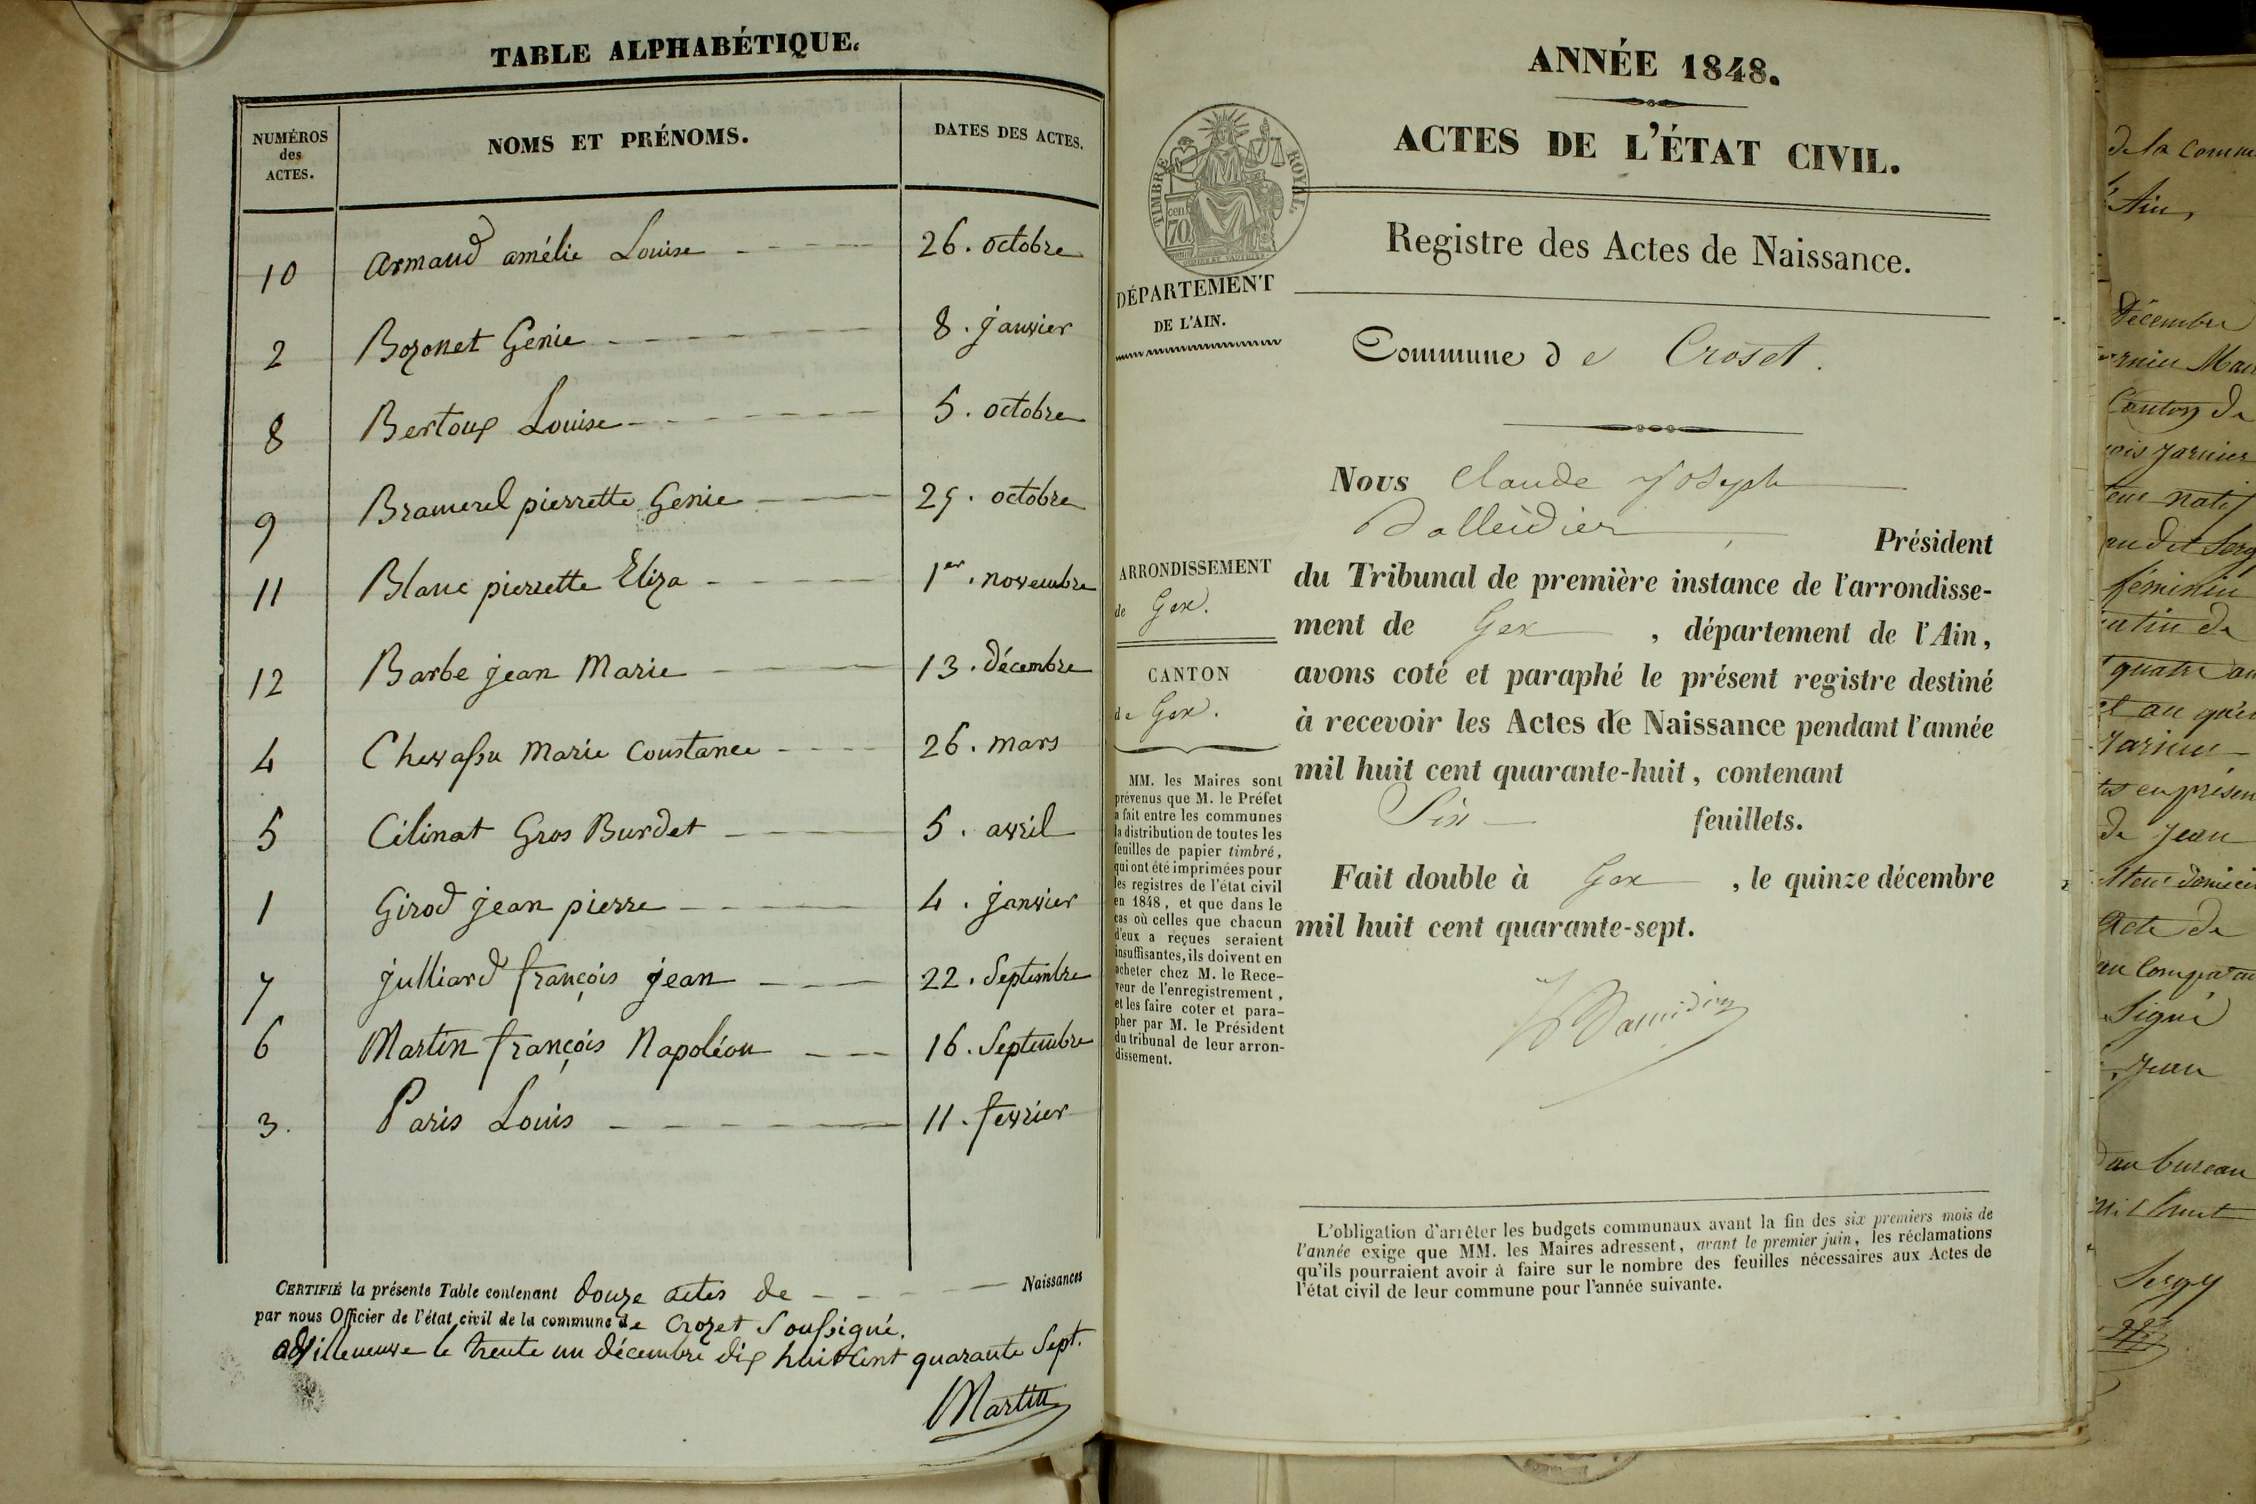 TABLE ALPHABÉTIQUE.
NUMÉROS
des
ACTES.
NOMS ET PRÉNOMS.
DATES DES ACTES.
10 Armand amélie Louise 26. octobre
2 Bozonet Génie 8. janvier
8 Bertoux Louise 5. octobre
9 Bramerel pierrette Génie 25. octobre
11 Blanc pierrette Eliza 1er. novembre
12 Barbe jean Marie 13. décembre
4 Chevassu Marie Constance 26. mars
5 Cilinat Gros Burdet 5. avril
1 Girod jean pierre 4. janvier
7 julliard françois jean 22. Septembre
6 Martin françois Napoléon 16. Septembre
3. Paris Louis 11. fevrier
CERTIFIÉ la présente Table contenant douze actes de Naissances
par nous Officier de l'état civil de la commune de Crozet Soussigné.
a Villeneuve le trente un décembre dix huit Cent quarante Sept.
Martin
ANNÉE 1848.
ACTES DE L'ÉTAT CIVIL.
TIMBRE ROYAL
cent.
70
Registre des Actes de Naissance.
DÉPARTEMENT
DE L'AIN.
Commune de Croset.
Nous Claude Joseph
Président
ARRONDISSEMENT
de Gex.
CANTON
de Gex.
du Tribunal de première instance de l'arrondisse-
ment de Gex, département de l'Ain,
avons coté et paraphé le présent registre destiné
à recevoir les Actes de Naissance pendant l'année
mil huit cent quarante-huit, contenant
Six feuillets.
Fait double à Gex, le quinze décembre
mil huit cent quarante-sept.
MM. les Maires sont
prévenus que M. le Préfet
a fait entre les communes
la distribution de toutes les
feuilles de papier timbré,
qui ont été imprimées pour
les registres de l'état civil
en 1848, et que dans le
cas où celles que chacun
d'eux a reçues seraient
insuffisantes, ils doivent en
acheter chez M. le Rece-
veur de l'enregistrement,
et les faire coter et para-
pher par M. le Président
du tribunal de leur arron-
dissement.
L'obligation d'arrêter les budgets communaux avant la fin des six premiers mois de
l'année exige que MM. les Maires adressent, avant le premier juin, les réclamations
qu'ils pourraient avoir à faire sur le nombre des feuilles nécessaires aux Actes de
l'état civil de leur commune pour l'année suivante.
de la comm
Ain,
Décembre
Canton de
natif
féminin
quatre
de Jean
Acte de
Signé
Jean
au bureau
Sergy